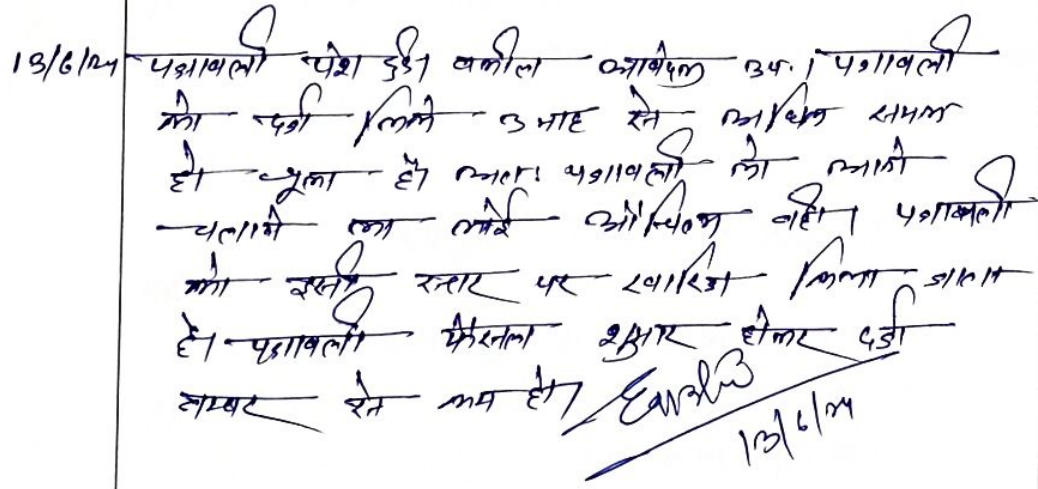 13/6/24 पत्रावली पेश हुई। वकील आवेदक उप.। पत्रावली
को दर्ज किये 3 माह से अधिक समय
हो चुका है। अतः पत्रावली को आगे
चलाने का कोई औचित्य नहीं। पत्रावली
को इसी स्तर पर खारिज किया जाता
है। पत्रावली फैसला शुमार होकर दर्ज
नम्बर से कम हो।
13/6/24